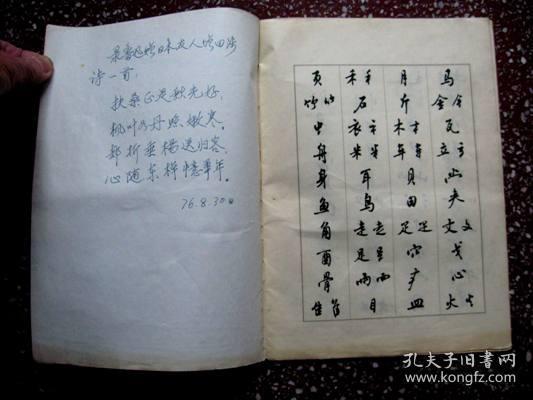 录鲁迅赠日本友人增田涉
诗一首：
扶桑正是秋光好，
枫叶如丹照嫩寒。
却折垂杨送归客，
心随东棹忆华年。
76.8.30日
马金瓦立山夫文戈心火
月斤木车贝田足穴疒皿
禾石衣米耳鸟走足雨目
页竹虫舟身鱼角酉骨隹
孔夫子旧书网
www.kongfz.com